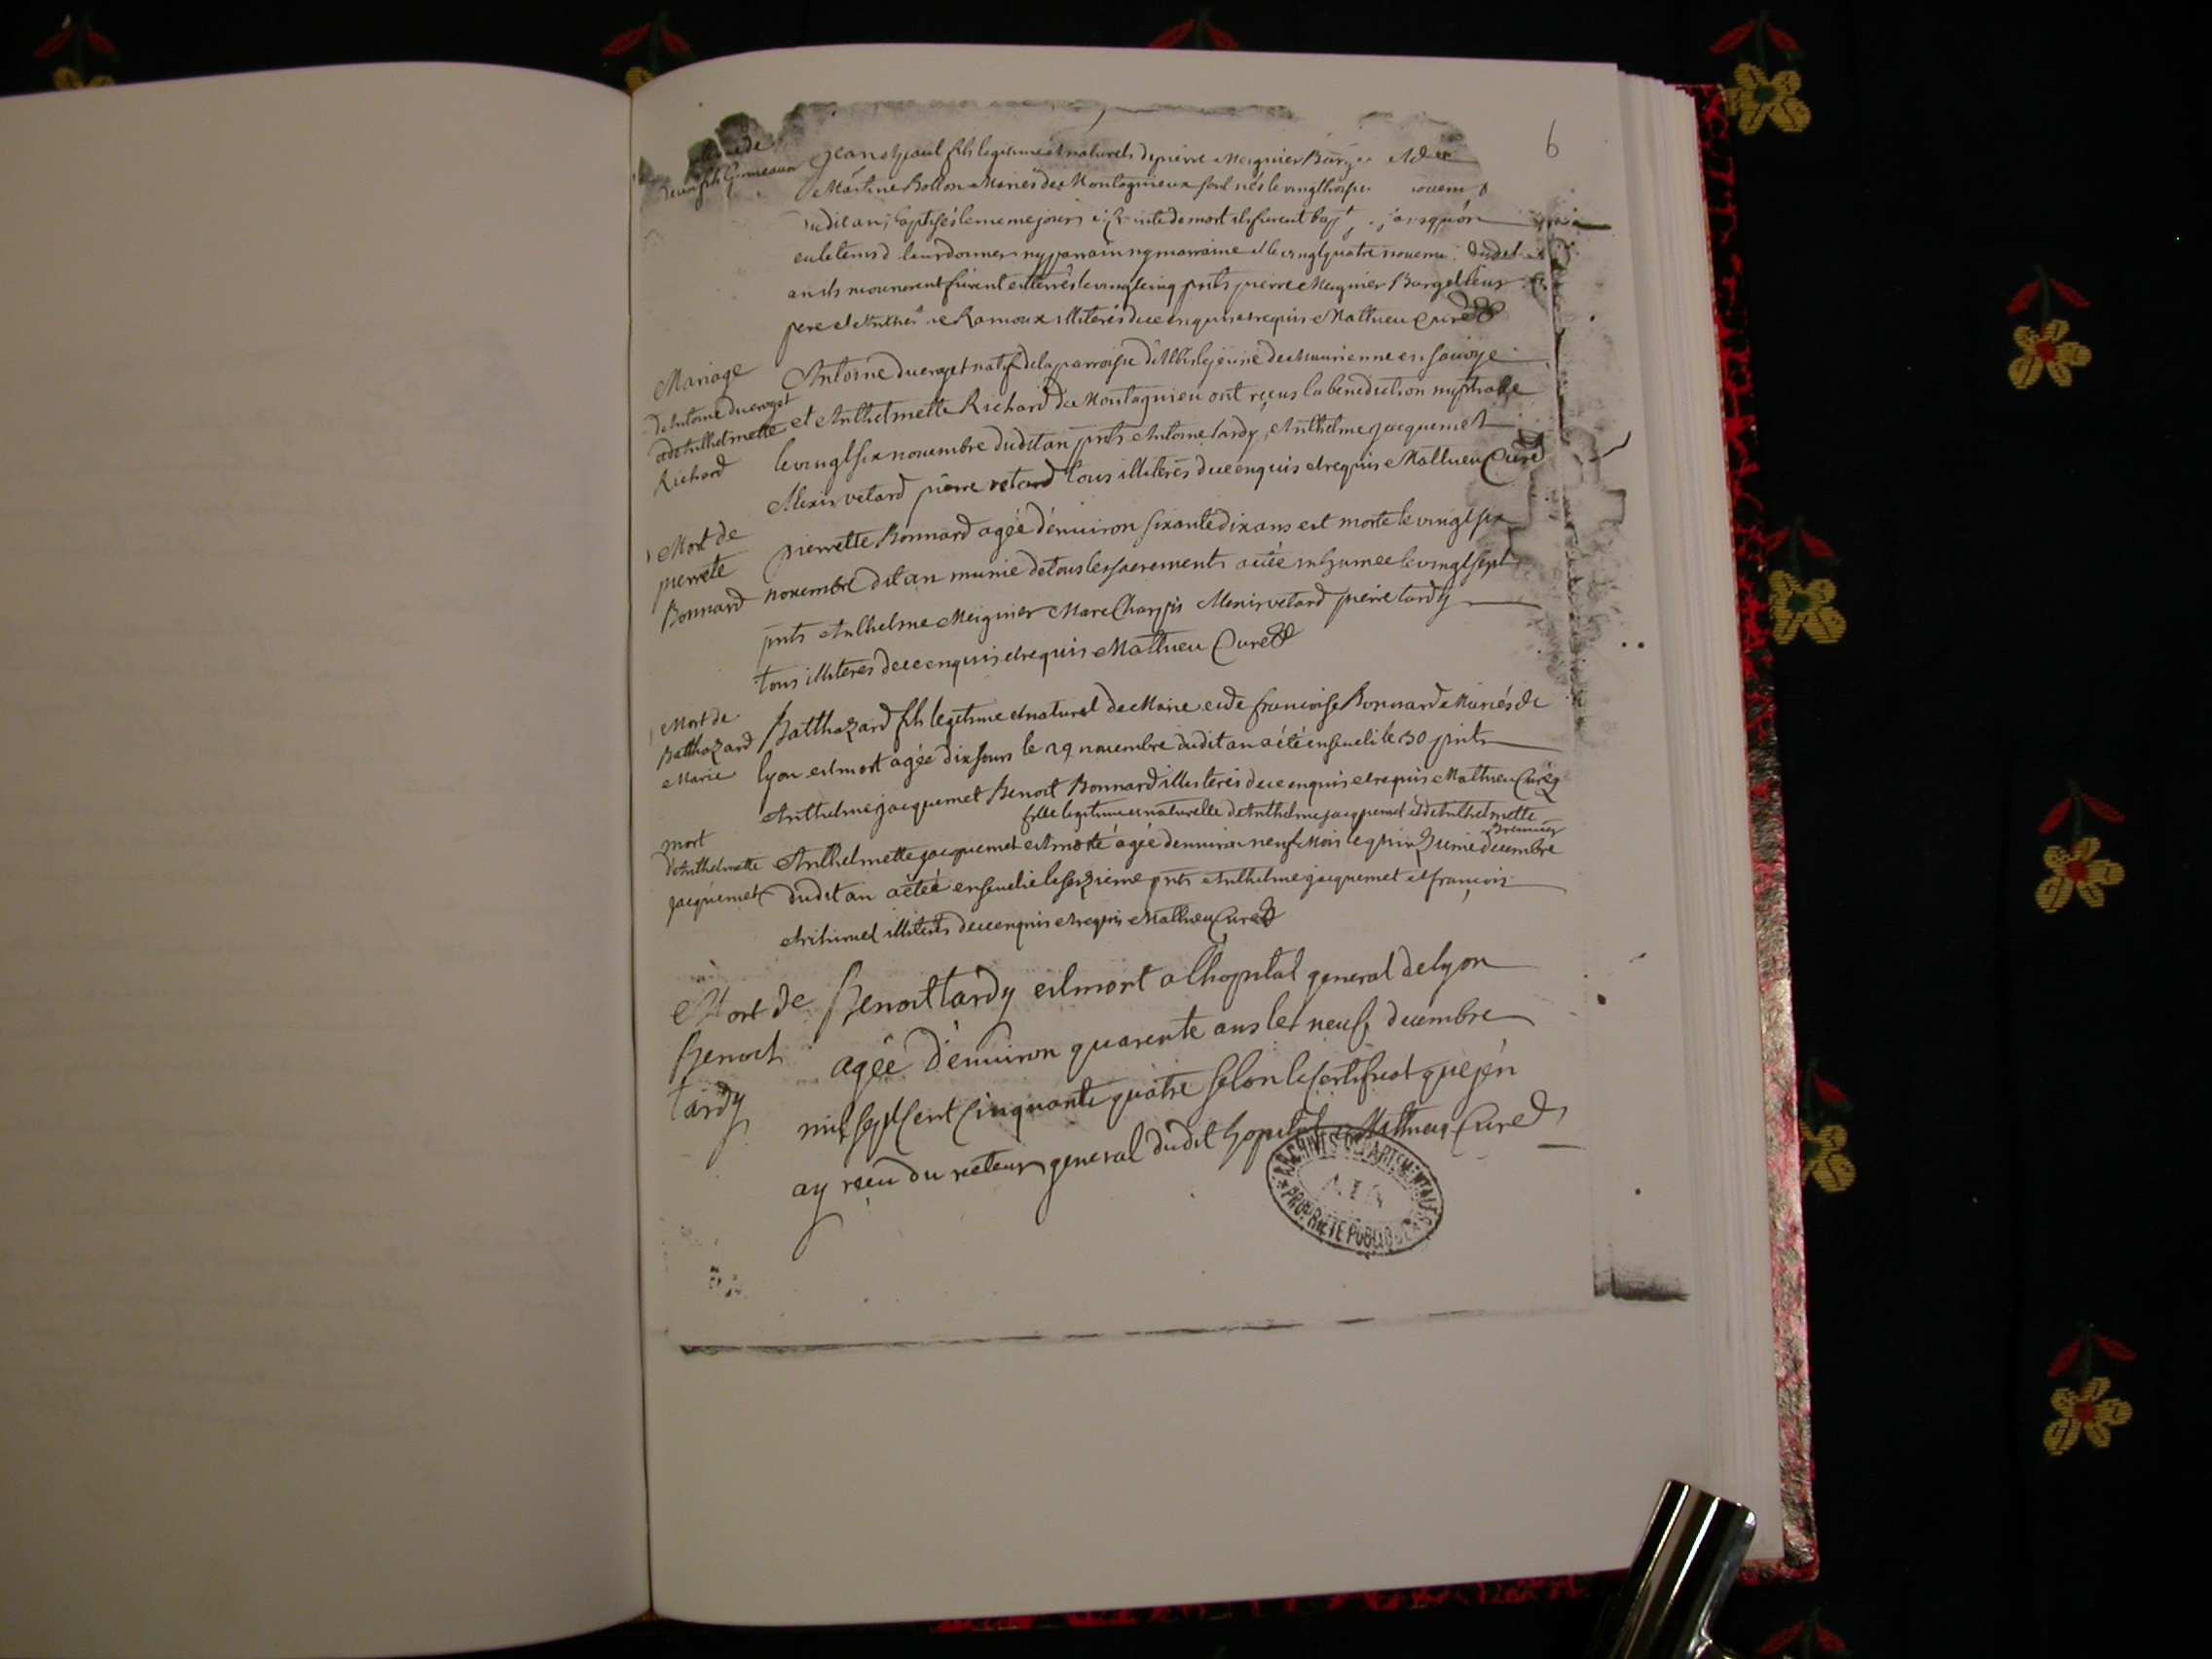 6
deux fils Gumeaux
Jean et paul fils legitimes et naturels de pierre Meignier Burget et de
Martine Bollon Mariés de Montagnieux sont nés le vingt
dudit an, baptisés le meme jour de mort ils furent
eu le tems d leur donner ny parrain ny marraine et le vingt quatre novem dudit
an ils moururent furent enterrés le vingt cinq pnts pierre Meignier Burget leur
pere et Ramoux illiterés de ce enquis et requis Mathieu Curé
Mariage
d'Antoine ducroget
et d'Anthelmette
Richard
Antoine ducroget natif de la parroisse d'Albis le jeune de Maurienne en Savoye
et Anthelmette Richard de Montagnieu ont reçus la benediction nuptialle
le vingt six novembre dudit an pnts Antoine tardy, Anthelme jacquemet
Alexis vetard pierre vetard tous illiterés de ce enquis et requis Mathieu Curé
Mort de
pierrete
Bonnard
pierrette Bonnard agée d'environ sixante dix ans est morte le vingt six
novembre dit an munie de tous les sacrements a étée inhumee le vingt sept
pnts Anthelme Meignier Marc Charpis Alexis vetard pierre tardy
tous illiteres de ce enquis et requis Mathieu Curé
Mort de
Balthazard
Marie
Balthazard fils legitime et naturel de Marie et de francoise Bonnard Mariés de
lyon est mort agée dix jours le 29 novembre dudit an a été enseveli le 30 pnts
Anthelme jacquemet Benoit Bonnard illiterés de ce enquis et requis Mathieu Curé
mort
d'Anthelmette
jacquemet
fille legitime et naturelle d'Anthelme jacquemet et d'Anthelmette
Anthelmette jacquemet est morte agée d'environ neuf Mois le quinzieme decembre
dudit an a étée ensevelie le seizieme pnts Anthelme jacquemet et françois
illiterés de ce enquis et requis Mathieu Curé
Mort de
Benoit
tardy
Benoit tardy est mort a lhopital general de lyon
agée d'environ quarente ans le neuf decembre
mil sept cent cinquante quatre selon le certificat que j'en
ay recu du recteur general dudit hopital Mathieu Curé
ARCHIVES DEPARTEMENTALES
AIN
PROPRIETE PUBLIQUE